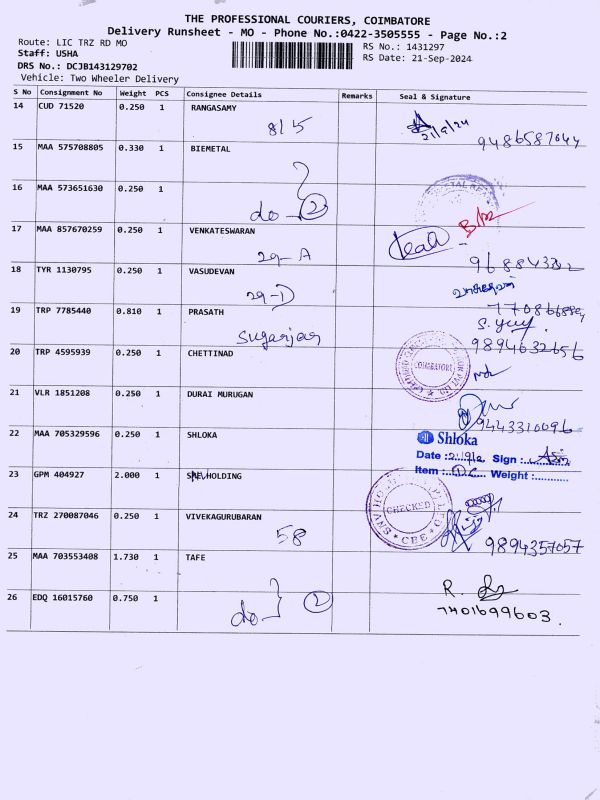 THE PROFESSIONAL COURIERS, COIMBATORE
Delivery Runsheet - MO - Phone No.:0422-3505555 - Page No.:2
Route: LIC TRZ RD MO
Staff: USHA
DRS No.: DCJB143129702
Vehicle: Two Wheeler Delivery
RS No.: 1431297
RS Date: 21-Sep-2024
S No Consignment No Weight PCS Consignee Details Remarks Seal & Signature
14 CUD 71520 0.250 1 RANGASAMY
8/5 21/9/24 9486587044
15 MAA 575708805 0.330 1 BIEMETAL
16 MAA 573651630 0.250 1
do 2
17 MAA 857670259 0.250 1 VENKATESWARAN
29-A
18 TYR 1130795 0.250 1 VASUDEVAN
29-D
19 TRP 7785440 0.810 1 PRASATH
9894632656
20 TRP 4595939 0.250 1 CHETTINAD
COIMBATORE
21 VLR 1851208 0.250 1 DURAI MURUGAN
9443310096
22 MAA 705329596 0.250 1 SHLOKA
Shloka
Date : Sign :
Item : Weight :
23 GPM 404927 2.000 1 HOLDING
CHECKED
24 TRZ 270087046 0.250 1 VIVEKAGURUBARAN
58 9894357057
25 MAA 703553408 1.730 1 TAFE
26 EDQ 16015760 0.750 1
do 2 R.
7401699603.